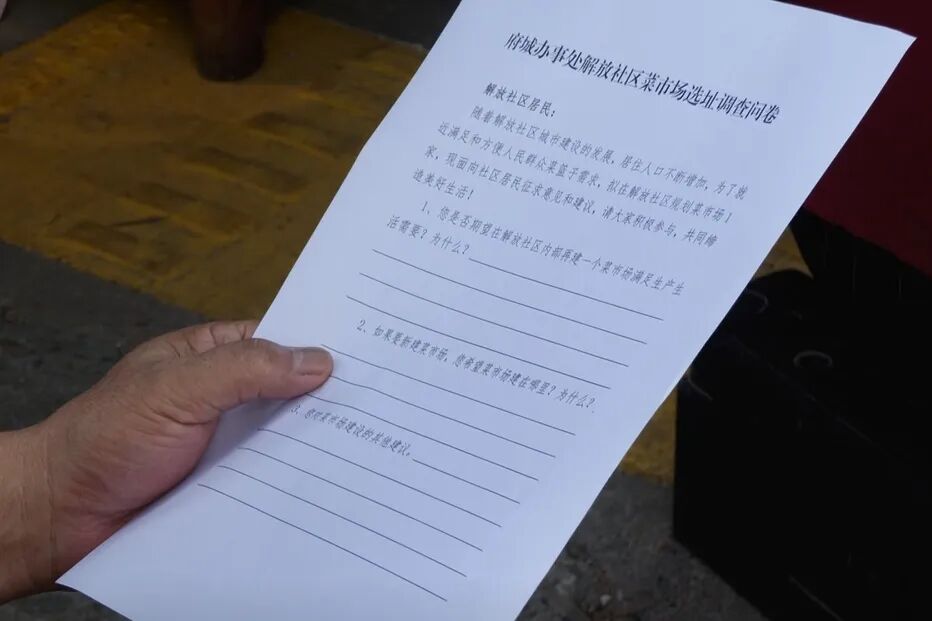 府城办事处解放社区菜市场选址调查问卷
解放社区居民：
随着解放社区城市建设的发展，居住人口不断增加，为了就
近满足和方便人民群众菜篮子需求，拟在解放社区规划菜市场！
家，现面向社区居民征求意见和建议，请大家积极参与，共同缔
造美好生活！
1、您是否期望在解放社区内部再建一个菜市场满足生产生
活需要？为什么？
2、如果要新建菜市场，您希望菜市场建在哪里？为什么？
3、您对菜市场建设的其他建议。